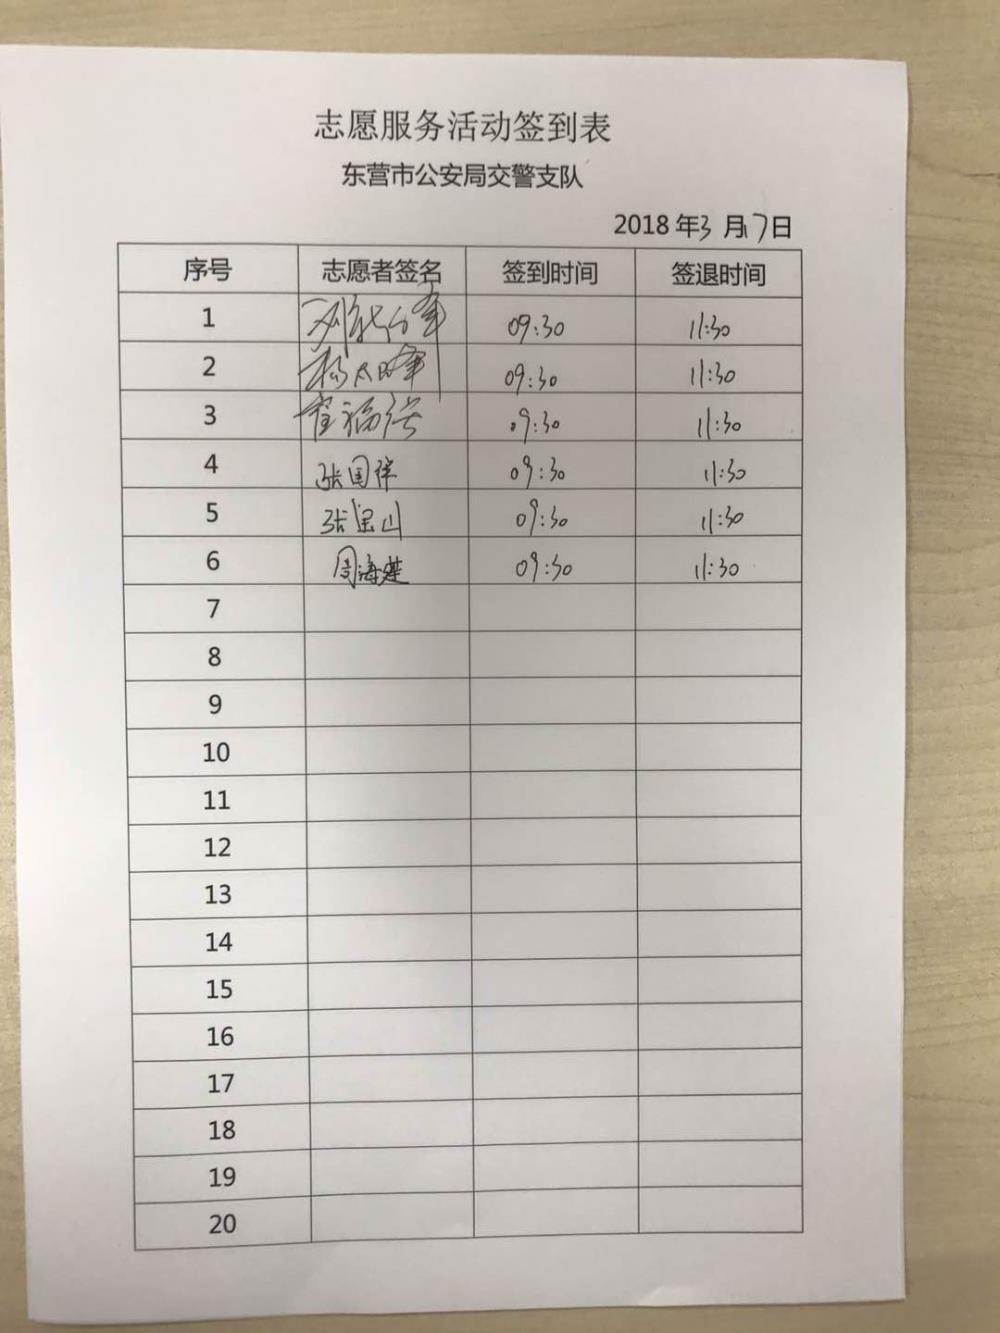 志愿服务活动签到表
东营市公安局交警支队
2018年3月17日
序号 志愿者签名 签到时间 签退时间
1 09:30 11:30
2 杨太峰 09:30 11:30
3 崔福洪 09:30 11:30
4 张国祥 09:30 11:30
5 张宝山 09:30 11:30
6 周海莲 09:30 11:30
7
8
9
10
11
12
13
14
15
16
17
18
19
20